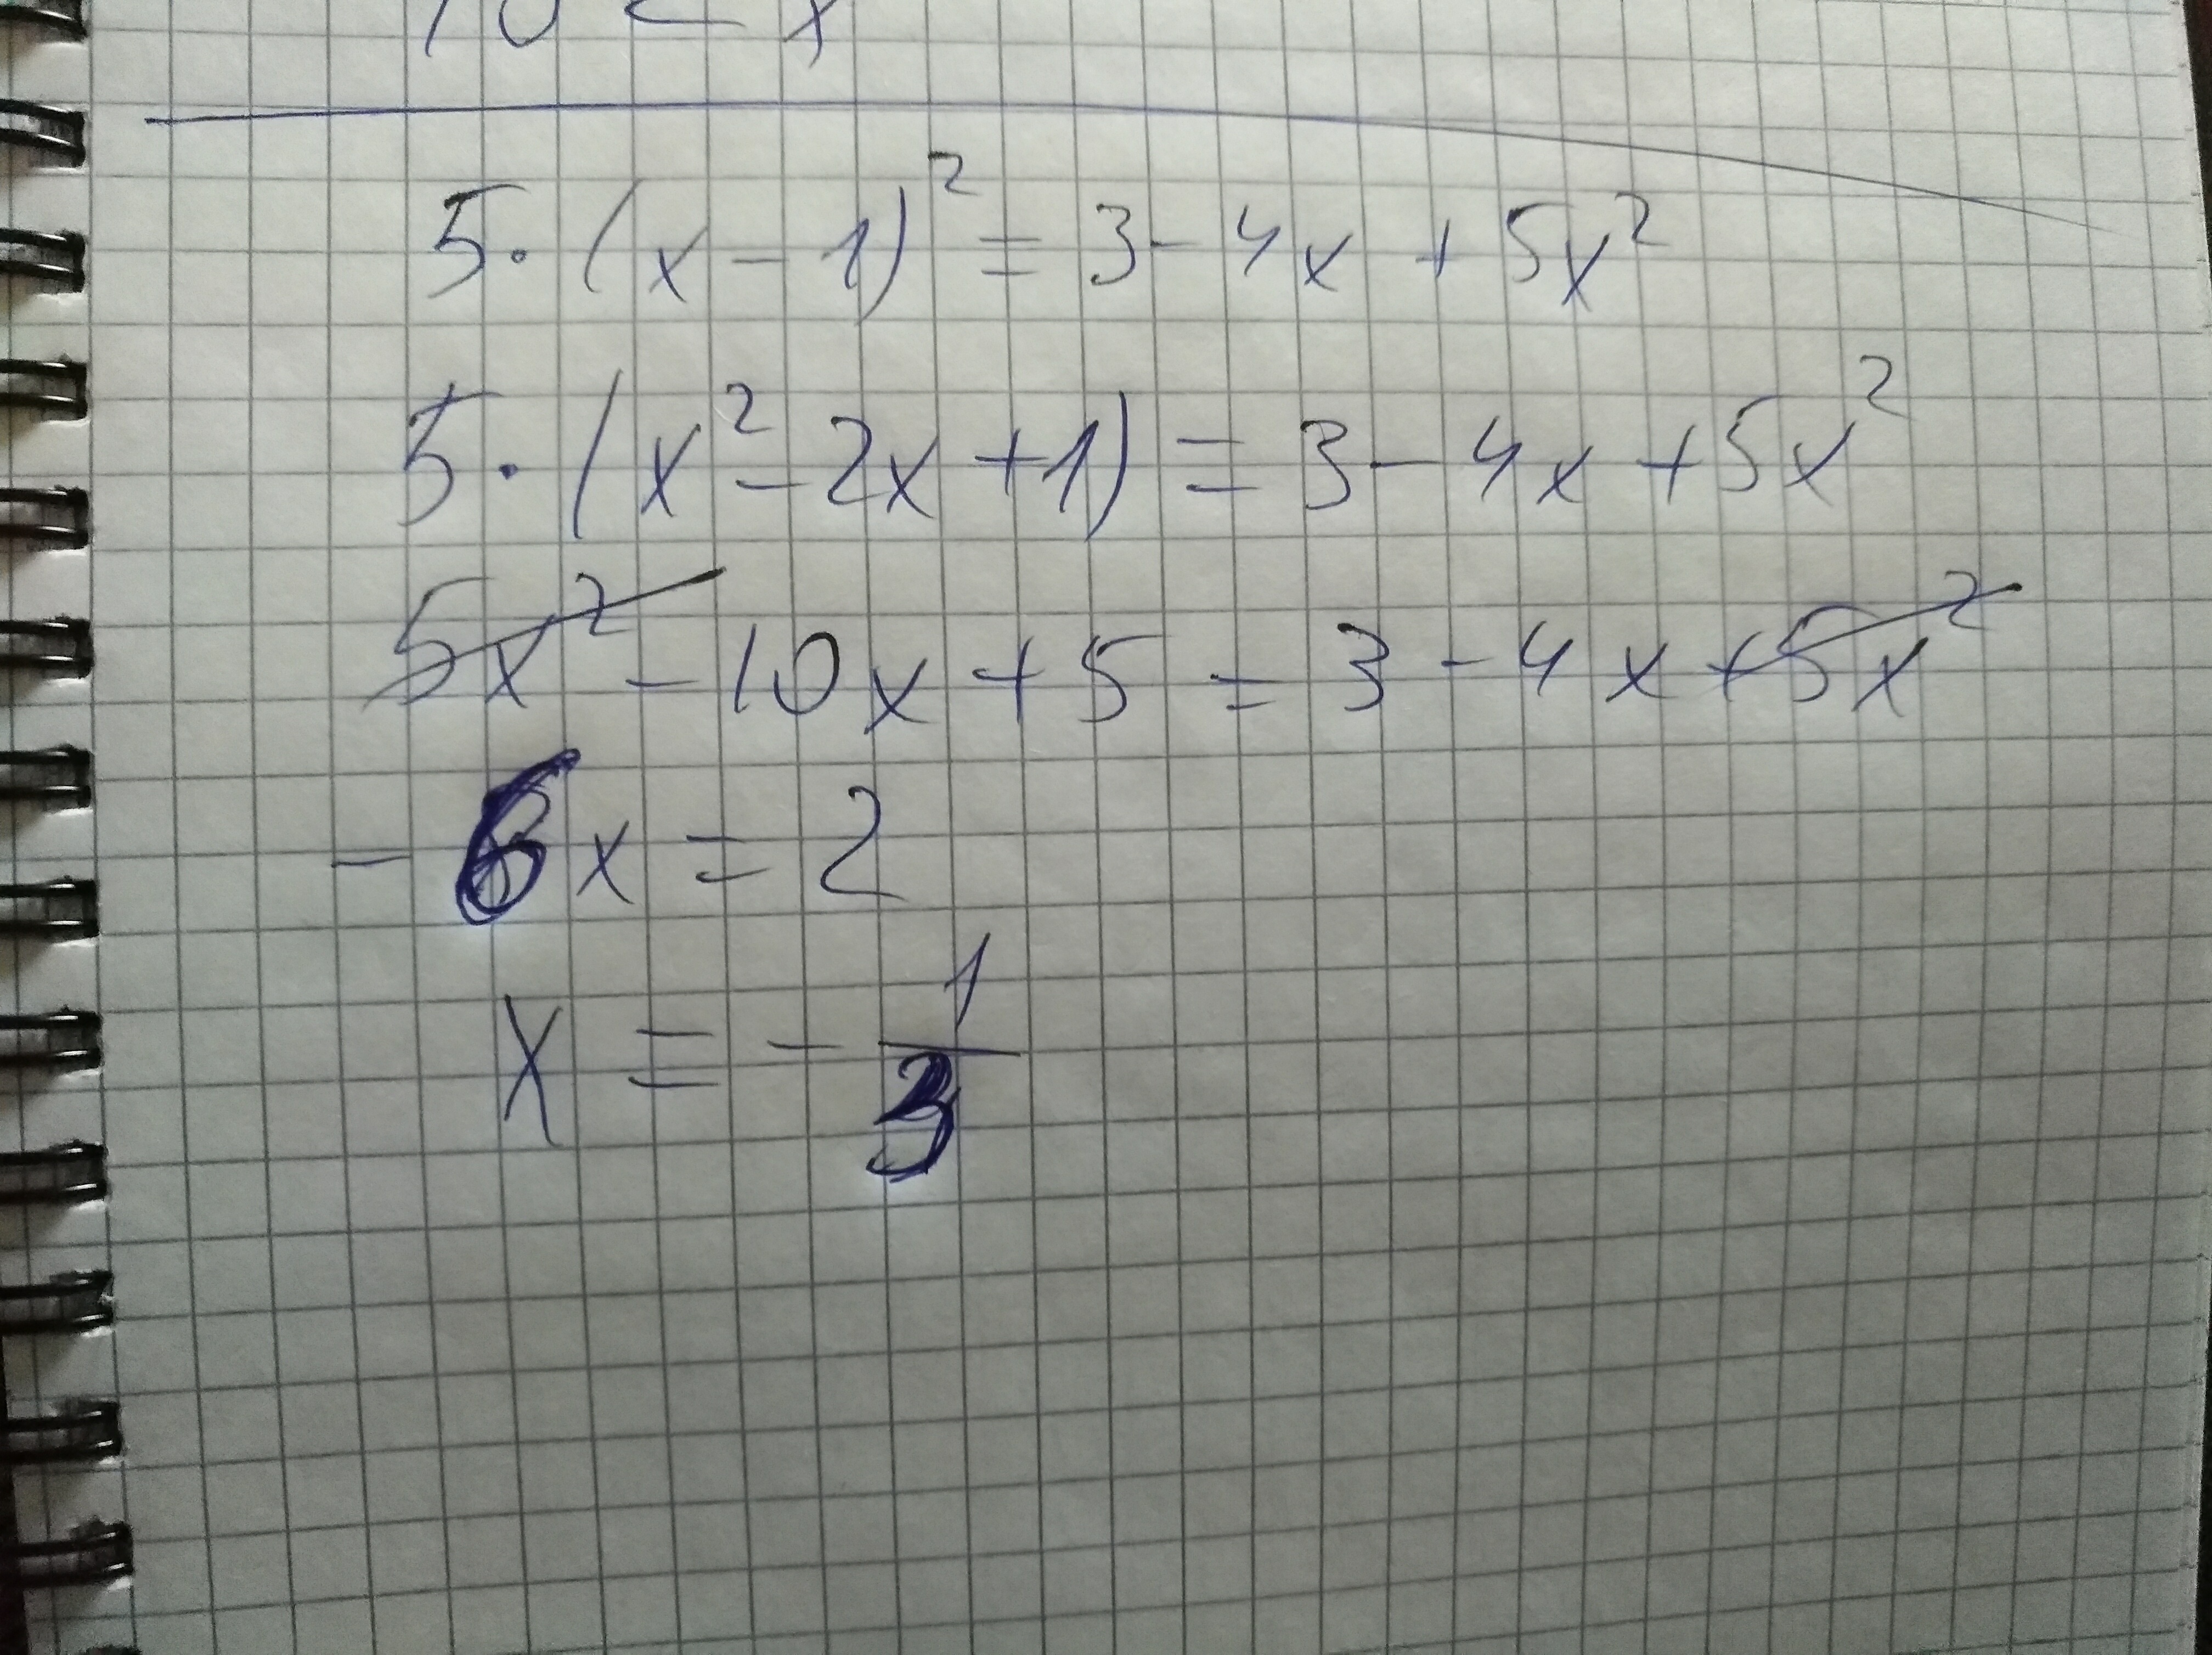 10 < x
5·(x-1)² = 3-4x+5x²
5·(x²-2x+1) = 3-4x+5x²
5x²-10x+5 = 3-4x+5x²
-6x = 2
x = -1/3